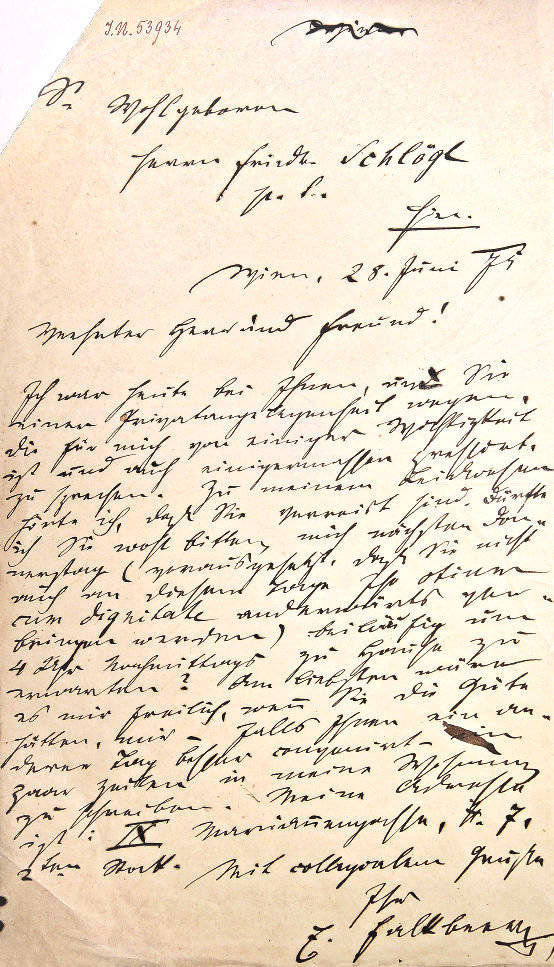 I.N. 53934
Sr Wohlgeboren
Herrn Friedr. Schlögl
p. t.
Hier.
Wien, 28. Juni 75
Verehrter Herr und Freund!
Ich war heute bei Ihnen, um Sie
einer Privatangelegenheit wegen,
die für mich von einiger Wichtigkeit
ist und auch einigermassen pressirt,
zu sprechen. Zu meinem Leidwesen
hörte ich, daß Sie verreist sind. Dürfte
ich Sie wohl bitten, mich nächsten Don-
nerstag (vorausgesetzt, daß Sie nicht
auch an diesem Tage Ihr otium
cum dignitate anderwärts ver-
bringen werden) beiläufig um
4 Uhr Nachmittags zu Hause zu
erwarten? Am liebsten wäre
es mir freilich, wenn Sie die Güte
hätten, mir – falls Ihnen ein an-
derer Tag besser convenirt – ein
paar Zeilen in meine Wohnung
zu schreiben. Meine Adresse
ist: IX Mariannengasse, N. 7,
2ten Stock. Mit collegialem Gruße
Ihr
E. Falkbeer